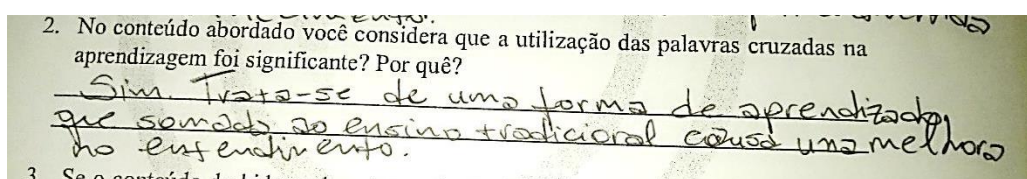 2. No conteúdo abordado você considera que a utilização das palavras cruzadas na
aprendizagem foi significante? Por quê?
Sim. Trata-se de uma forma de aprendizado,
que somado ao ensino tradicional causa uma melhora
no entendimento.
3. Se o conteúdo